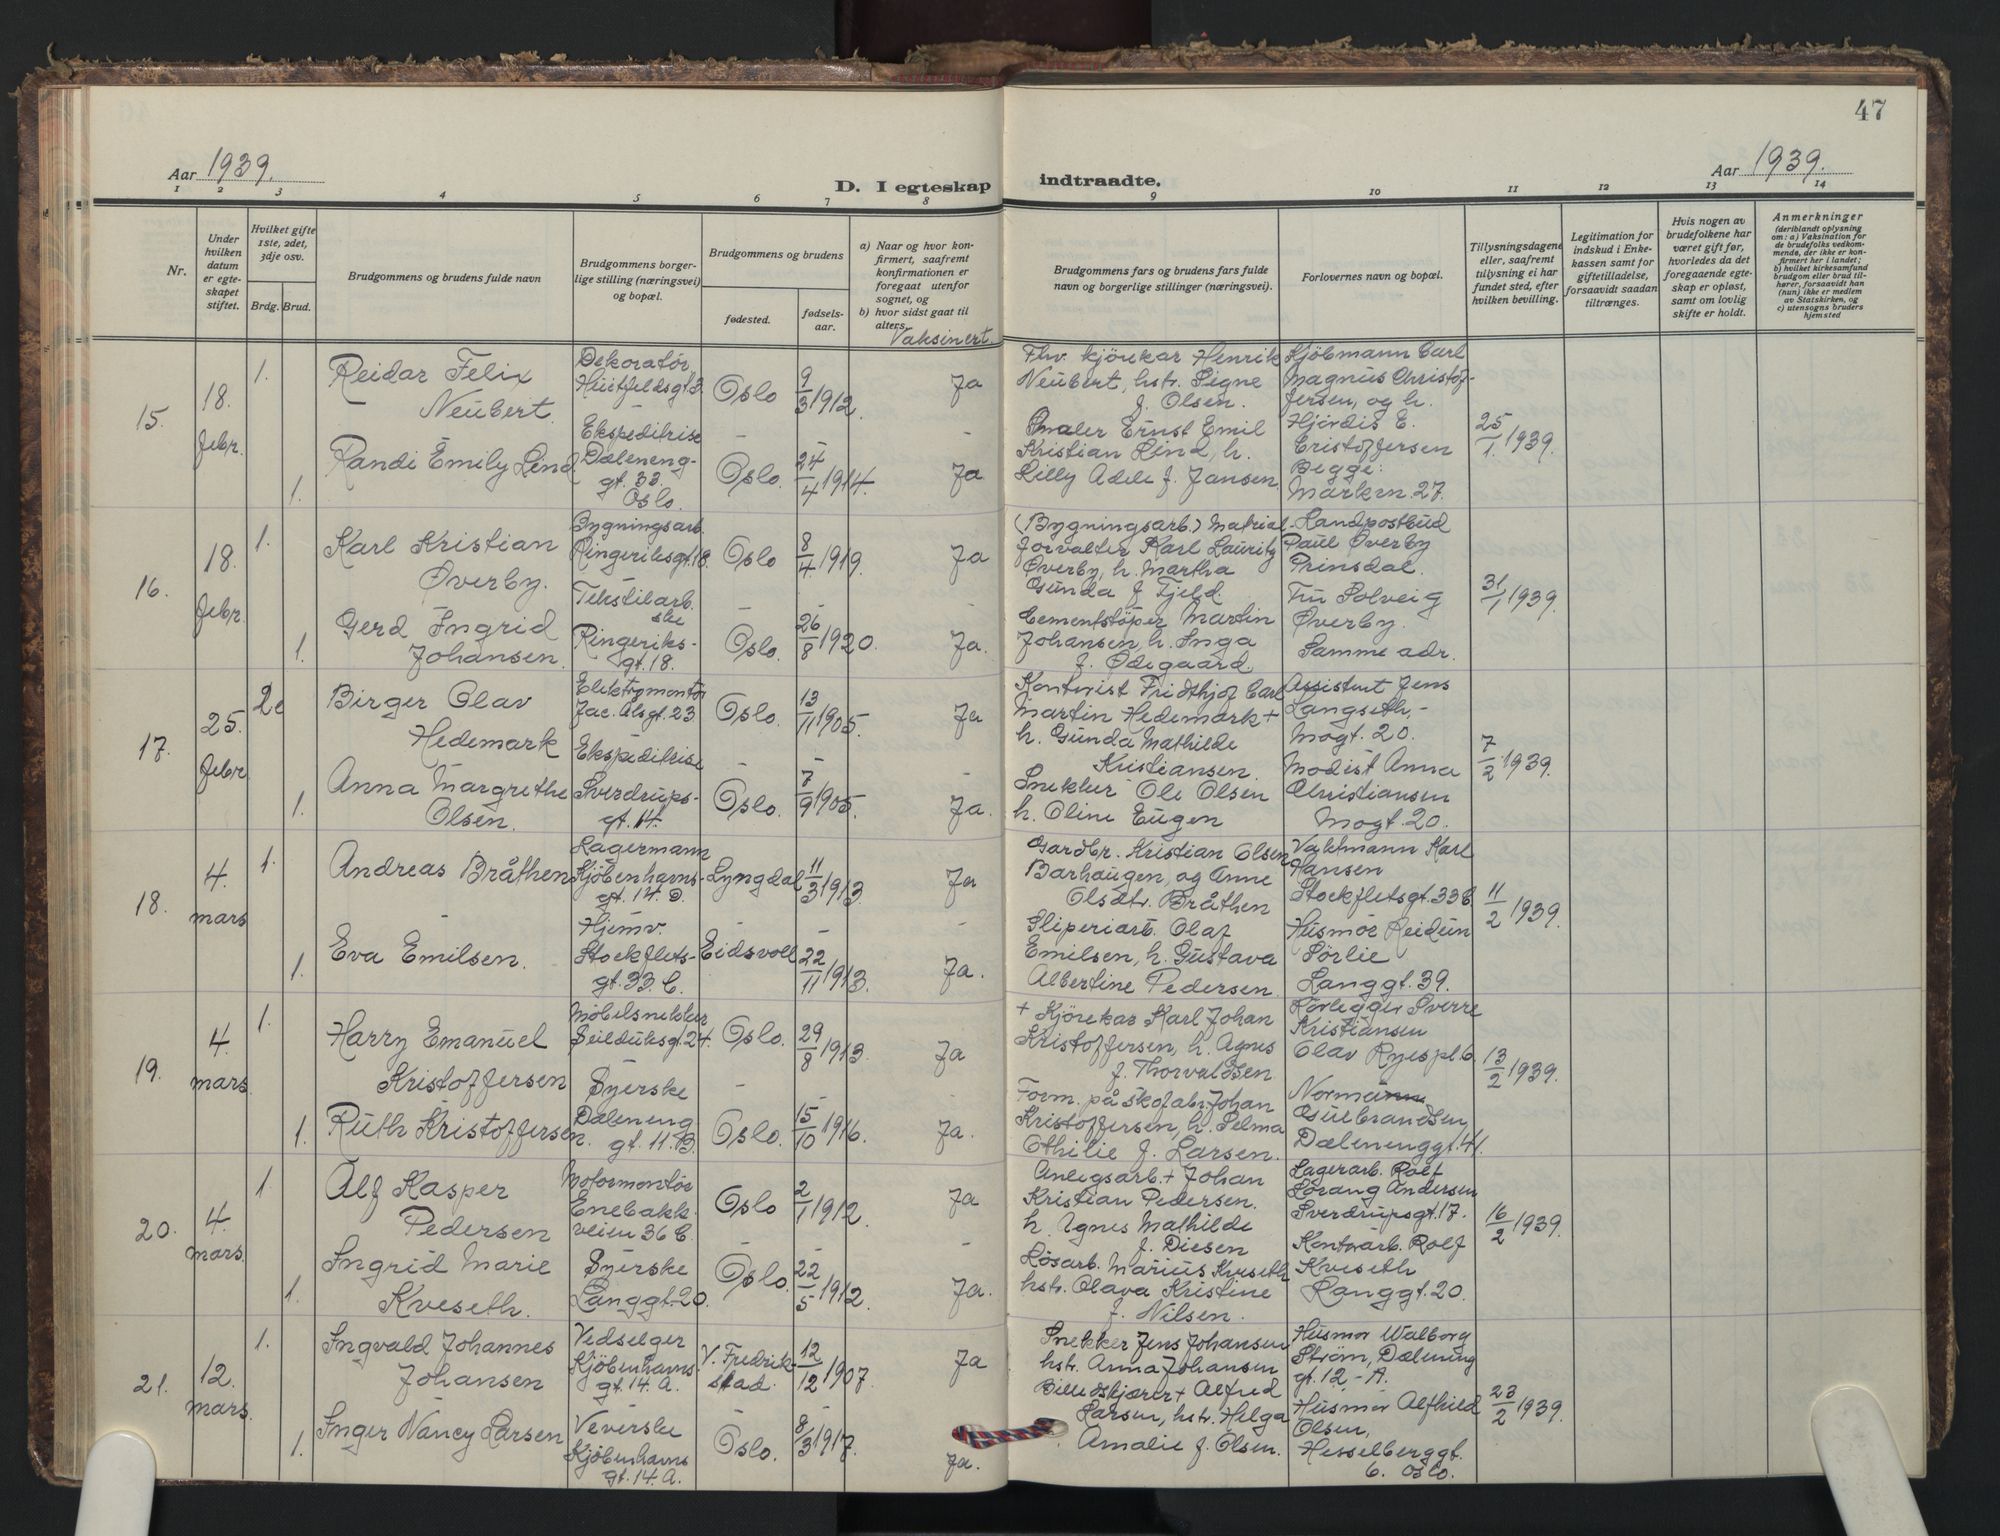 47
Aar 1939.
D. I egteskap indtraadte.
Aar 1939.
1 2 3 4 5 6 7 8 9 10 11 12 13 14
Nr.
Under hvilken datum er egteskapet stiftet.
Hvilket gifte 1ste, 2det, 3dje osv.
Brdg. Brud.
Brudgommens og brudens fulde navn
Brudgommens borgerlige stilling (næringsvei) og bopæl.
Brudgommens og brudens
fødested.
fødselsaar.
a) Naar og hvor konfirmert, saafremt konfirmationen er foregaat utenfor sognet, og
b) hvor sidst gaat til alters.
Vaksinert.
Brudgommens fars og brudens fars fulde navn og borgerlige stillinger (næringsvei).
Forlovernes navn og bopæl.
Tillysningsdagene eller, saafremt tillysning ei har fundet sted, efter hvilken bevilling.
Legitimation for indskud i Enkekassen samt for giftetilladelse, forsaavidt saadan tiltrænges.
Hvis nogen av brudefolkene har været gift før, hvorledes da det foregaaende egteskap er opløst, samt om lovlig skifte er holdt.
Anmerkninger
(deriblandt oplysning om: a) Vaksination for de brudefolks vedkommende, der ikke er konfirmert her i landet; b) hvilket kirkesamfund brudgom eller brud tilhører, forsaavidt han (hun) ikke er medlem av Statskirken, og c) utensogns bruders hjemsted
15.
18. febr.
1.
Reidar Felix Neubert.
Dekoratør Huitfeldsgt. 3
Oslo
9/3 1912.
Ja
Fhv. kjørekar Henrik Neubert, hstr. Signe f. Olsen.
Kjöbmann Carl Magnus Christoffersen, og h. Hjördis E. Cristoffersen Begge: Markvn. 27.
25/1 1939.
1.
Randi Emily Lind
Ekspeditrise Dæleneng-gt. 33. Oslo.
Oslo.
24/4 1914.
Ja
Maler Ernst Emil Kristian Lind, h. Lilly Adele f. Jansen.
16.
18. febr.
1.
Karl Kristian Øverby.
Bygningsarb. Ringeriksgt. 18.
Oslo
8/4 1919.
Ja
(Bygningsarb.) Matrialforvalter Karl Lauritz Øverby, h. Martha Gunda f. Fjeld.
Landpostbud Paul Øverby Prinsdal.
Fru Solveig Øverby. Samme adr.
31/1 1939.
1.
Gerd Ingrid Johansen.
Tekstilarb.ske Ringeriks-gt. 18.
Oslo.
26/8 1920.
Ja.
Cementstöper Martin Johansen, h. Inga f. Ødegaard.
17.
25. febr.
2e
Birger Olav Hedemark
Elektromontör Jac. Alsgt. 23
Oslo.
13/11 1905.
Ja
Kontorist Fridthjof Carl Martin Hedemark + h. Gunda Mathilde Kristiansen.
Assistent Jens Langseth, - Mogt. 20.
Modist Anna Christiansen Mogt. 20.
7/2 1939.
1.
Anna Margrethe Olsen.
Ekspeditrise Sverdrups-gt. 14.
Oslo.
7/9 1905.
Ja.
Snekker Ole Olsen h. Oline Eugen
18.
4. mars
1.
Andreas Bråthen
Lagermann Kjöbenhavns-gt. 14. D.
Lyngdal
11/3 1913
Ja
Gardbr. Kristian Olsen Barhaugen, og Anne Olsdtr. Bråthen
Vaktmann Karl Hansen Stockfletsgt. 33 C
11/2 1939.
1.
Eva Emilsen.
Hjemv. Stockflets-gt. 33. C.
Eidsvoll
22/11 1913.
Ja.
Sliperiarb. Olaf Emilsen, h. Gustava Albertine Pedersen.
Husmor Reidun Sörlie Langgt. 39.
19.
4. mars
1.
Harry Emanuel Kristoffersen
Möbelsnekker Seilduksgt. 24.
Oslo.
29/8 1913.
Ja
+ Kjörekar Karl Johan Kristoffersen, h. Agnes f. Thorvaldsen.
Rörlegger Sverre Kristiansen Olav Ryespl. 6.
13/2 1939.
1.
Ruth Kristoffersen.
Syerske Dæleneng gt. 11. B.
Oslo.
15/10 1916.
Ja.
Form. på skofabr. Johan Kristoffersen, h. Selma Othilie f. Larsen.
Normann Gulbrandsen, Dælenenggt. 41.
20.
4. mars.
1.
Alf Kasper Pedersen
Motormontör Enebakkveien 36 C.
Oslo
2/1 1912.
Ja
Anlegsarb. + Johan Kristian Pedersen. h. Agnes Mathilde f. Diesen
Lagerarb. Rolf Sörang Andersen Sverdrupsgt. 17.
16/2 1939.
1.
Ingrid Marie Kveseth.
Syerske Langgt. 20.
Oslo.
22/5 1912.
Ja.
Løsarb. Marius Kveseth hstr. Olava Kristine f. Nilsen.
Kontorarb. Rolf Kveseth Langgt. 20.
21.
12. mars.
1.
Ingvald Johannes Johansen
Vedselger Kjöbenhavns-gt. 14. A.
V. Fredrikstad.
12/12 1907.
Ja
Snekker Jens Johansen hstr. Anna Johansen
Husmor Walborg Ström, Dæleneng gt. 12 - A.
23/2 1939.
1.
Inger Nancy Larsen
Veverske Kjöbenhavns gt. 14. A.
Oslo.
8/3 1917.
Ja.
Billedskjærer + Alfred Larsen, hstr. Helga Amalie f. Olsen.
Husmor Alfhild Olsen, Hesselberggt. 6. Oslo.